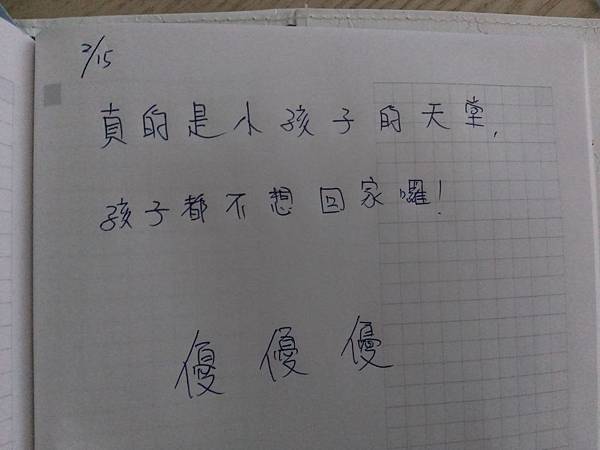 2/15
真的是小孩子的天堂,
孩子都不想回家囉!
優優優